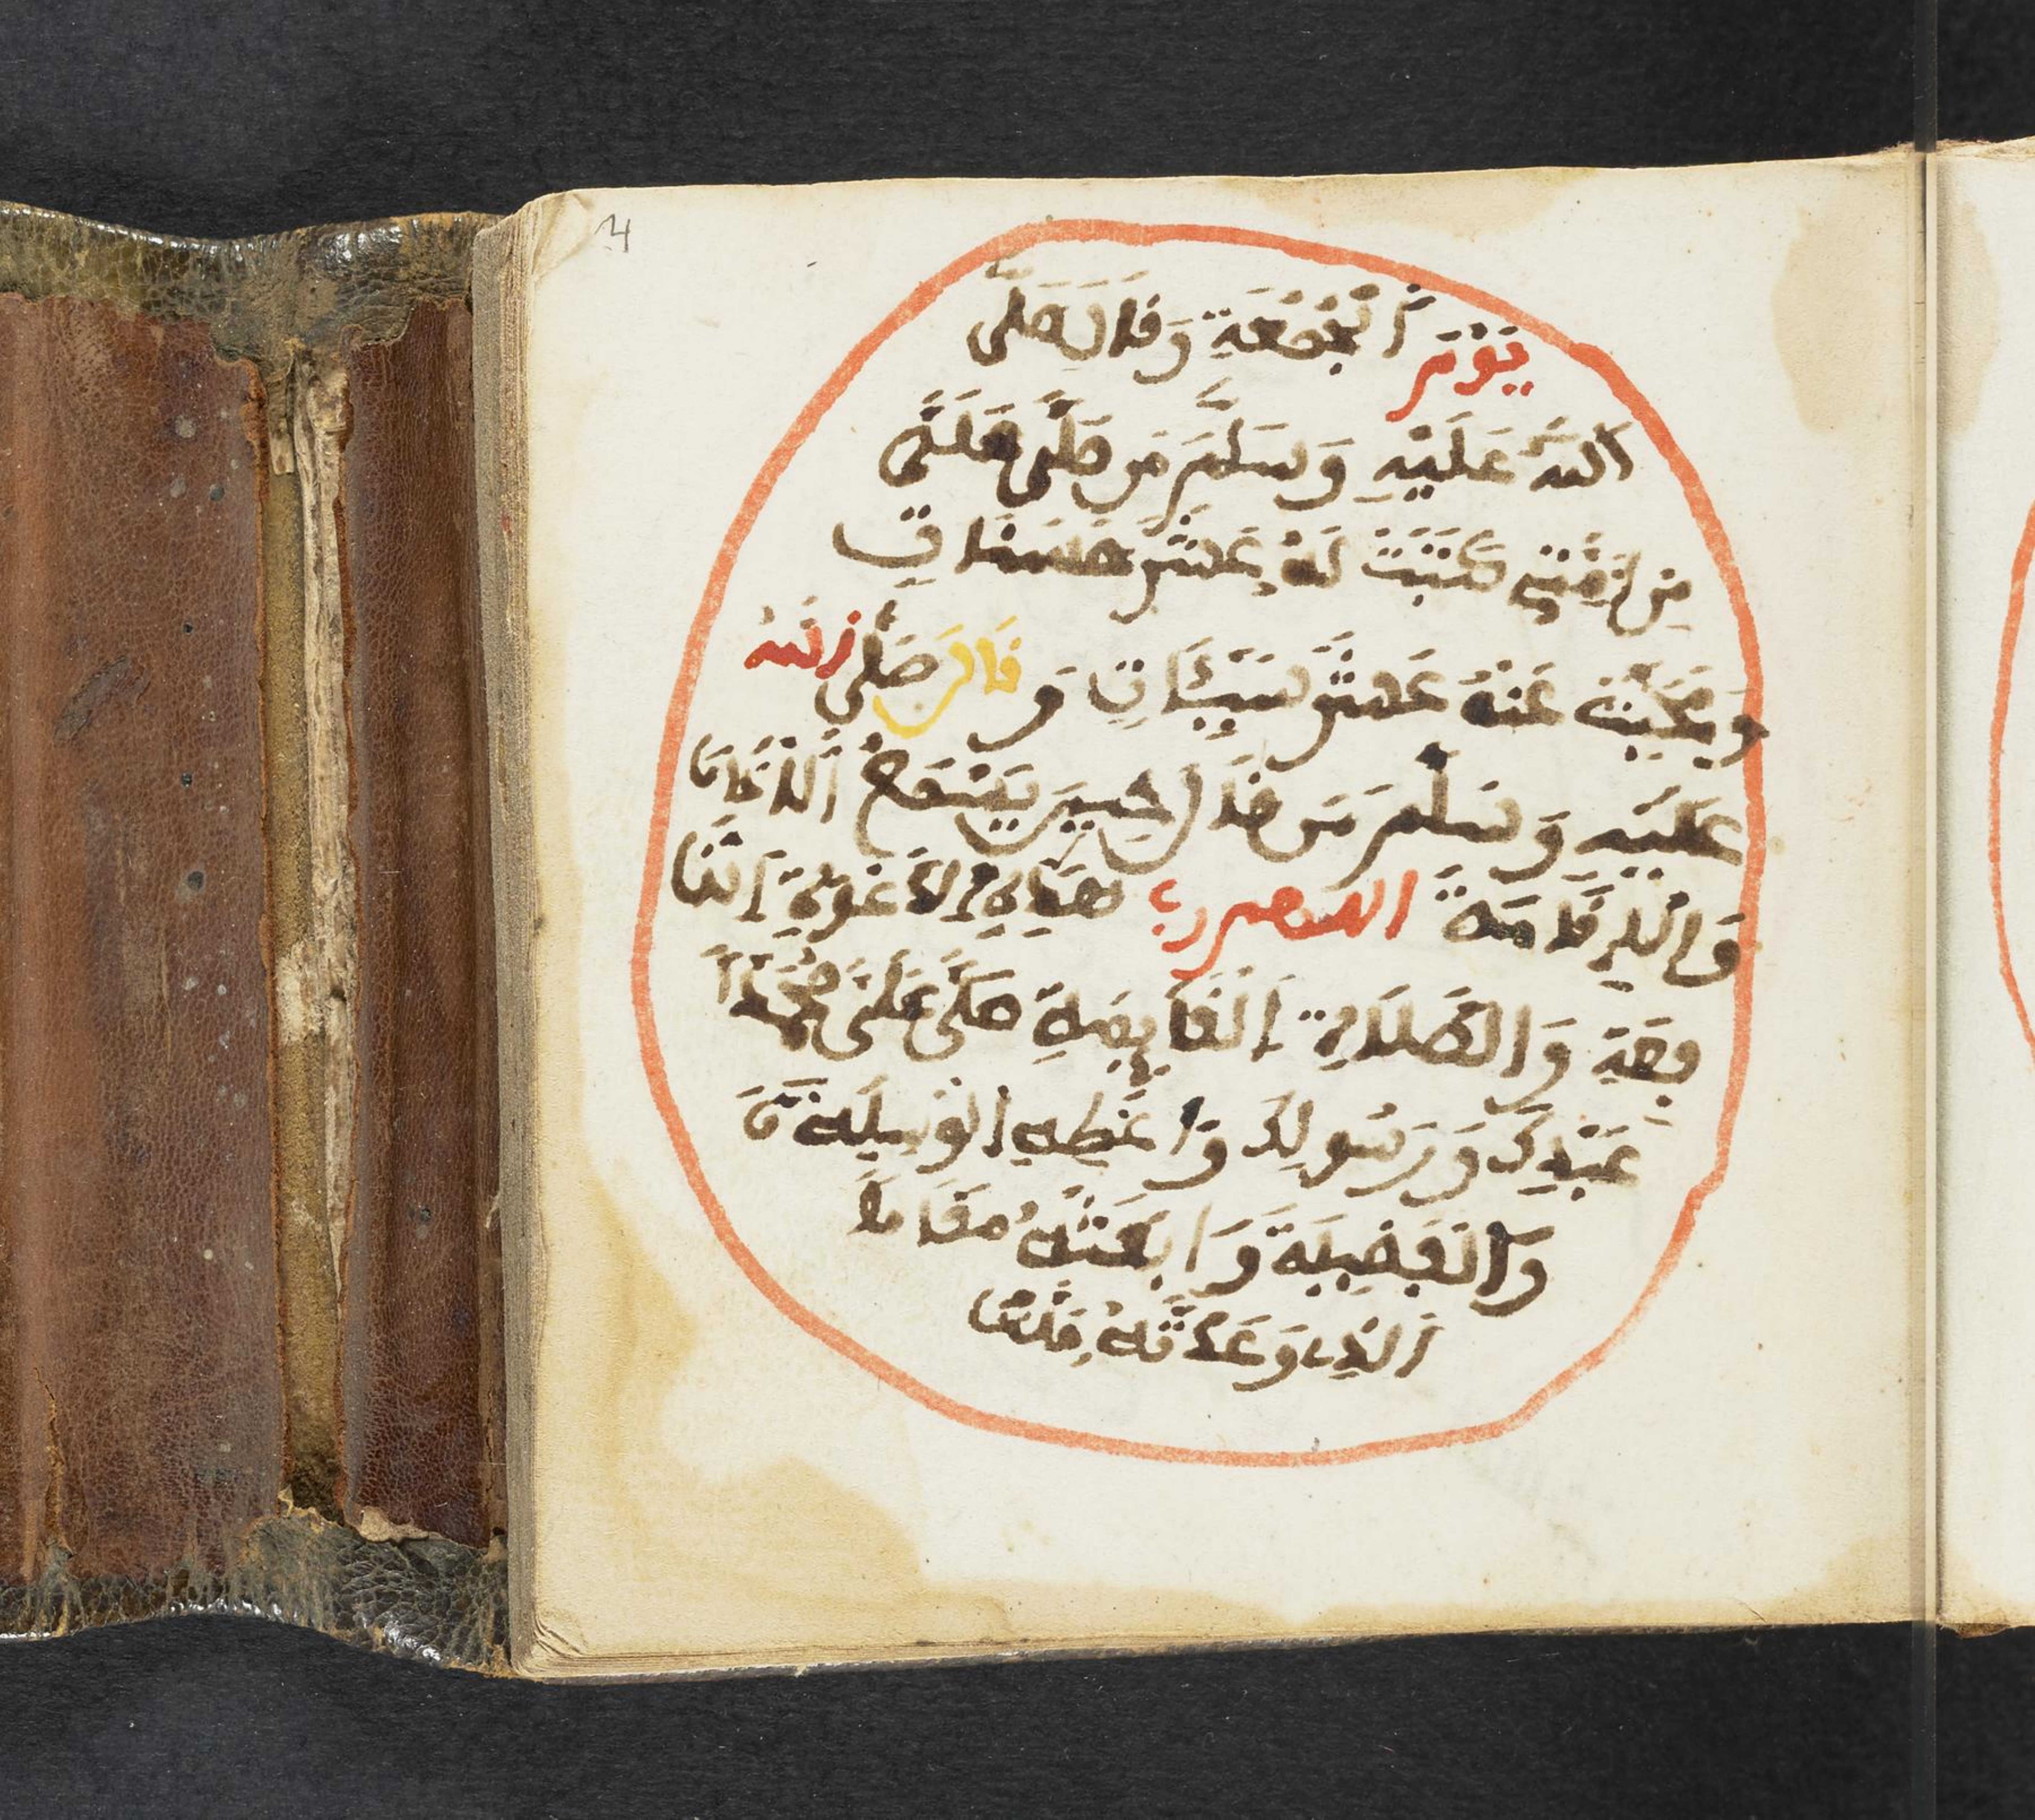 يَوْمَ اَلْجُمُعَةِ وَقَالَ صَلَّى
اَللَّهُ عَلَيْهِ وَسَلَّمَ مَن صَلَّى عَلَيَّ
مِن اُمَّتِي كُتِبَتْ لَهُ عَشْرُ حَسَنَاتٍ
وَمُحِيَتْ عَنْهُ عَشْرُ سَيِّئَاتٍ وَ قَالَ صَلَّى اللَّهُ
عَلَيْهِ وَسَلَّمَ مَن قَالَ حِينَ يَسْمَعُ اَلْاذَانَ
وَالْإِقَامَةَ اللهم رب هَذِهِ الدَّعْوَةِ النَّا
فِعَةِ وَالصَّلَاةِ الْقَايِمَةِ صَلِّ عَلَى مُحَمَّدٍ
عَبْدِكَ وَرَسُولِكَ وَاعْطِهِ الْوَسِيلَةَ
وَالْفَضِيلَةَ وَابْعَثْهُ مَقَامًا
اَلذِي وَعَدْتَهُ